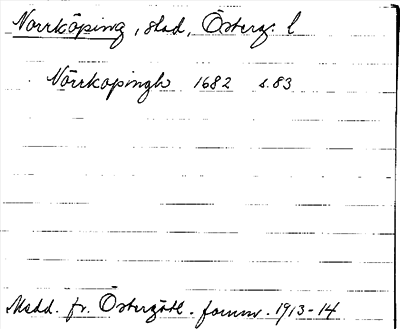 Norrköping, stad, Österg. l
Nörrkopingh 1682 s. 83
Medd. fr. Östergötl. fornm. 1913-14